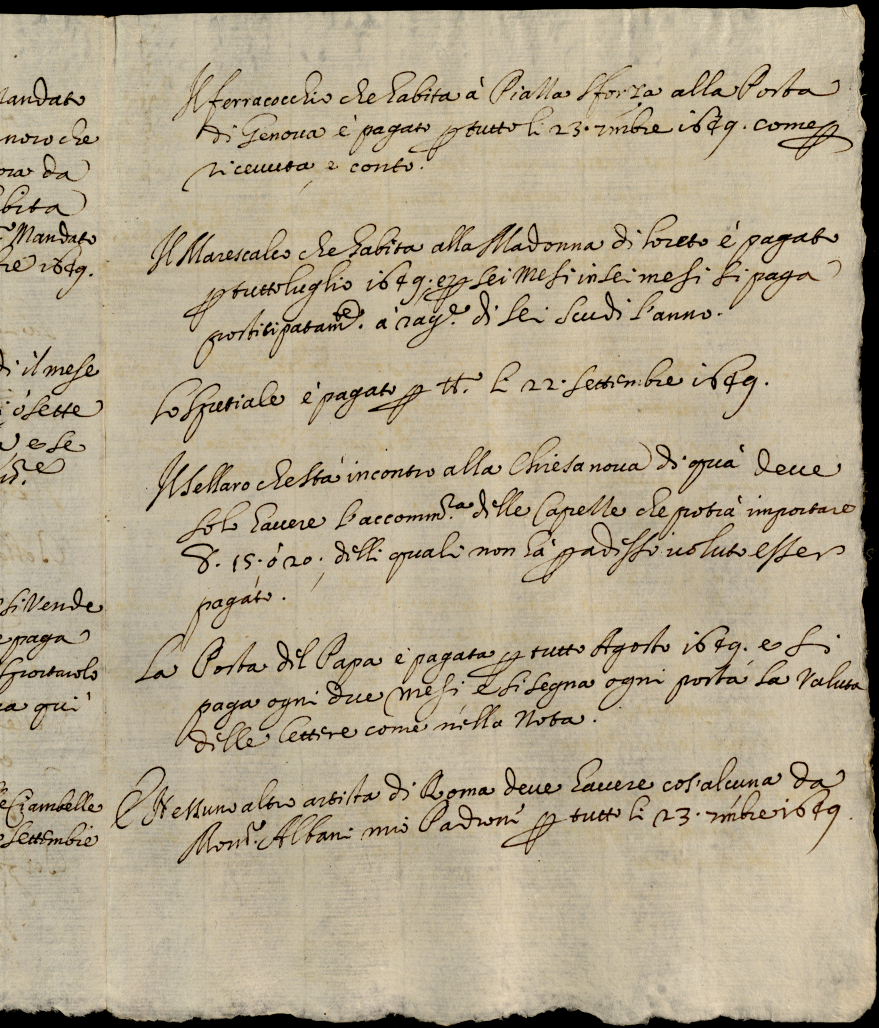 Mandato
nero che
ora da
bita
Mandato
re 1679.
di il mese
ó sette
e se
si Vende
e paga
sportarolo
ua qui
Ciambelle
Settembre
Il ferracocchio che habita à Piazza Sforza alla Posta
di Genova è pagato p tutto li 23. 7mbre 1679. come p
ricevuta e conto.
Il Marescalco che habita alla Madonna di loreto è pagato
p tutto luglio 1679. e p sei mesi in sei mesi si paga
postitipatamte. à ragne. di sei scudi l'anno.
Lo Spetiale è pagato p tt.o li 22. settembre 1679.
Il sellaro che stà incontro alla Chiesa nova di quà deve
solo havere l'accommra delle Capelle che potrà importare
15. ó 20. delli quali non hà p adesso voluto esser
pagato.
La Posta del Papa è pagata p tutto Agosto 1679. e si
paga ogni due mesi e si segna ogni posta la valuta
delle lettere come nella Nota.
E Nessuno altro artista di Roma deve havere cos'alcuna da
Monsr. Albani mio Padrone p tutto li 23. 7mbre 1679.